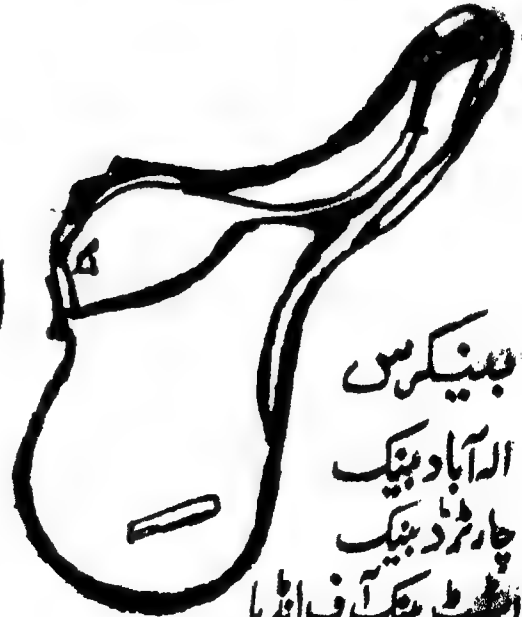 بینکرس
الہ آباد بینک
چارٹرڈ بینک
اسٹیٹ بینک آف انڈیا